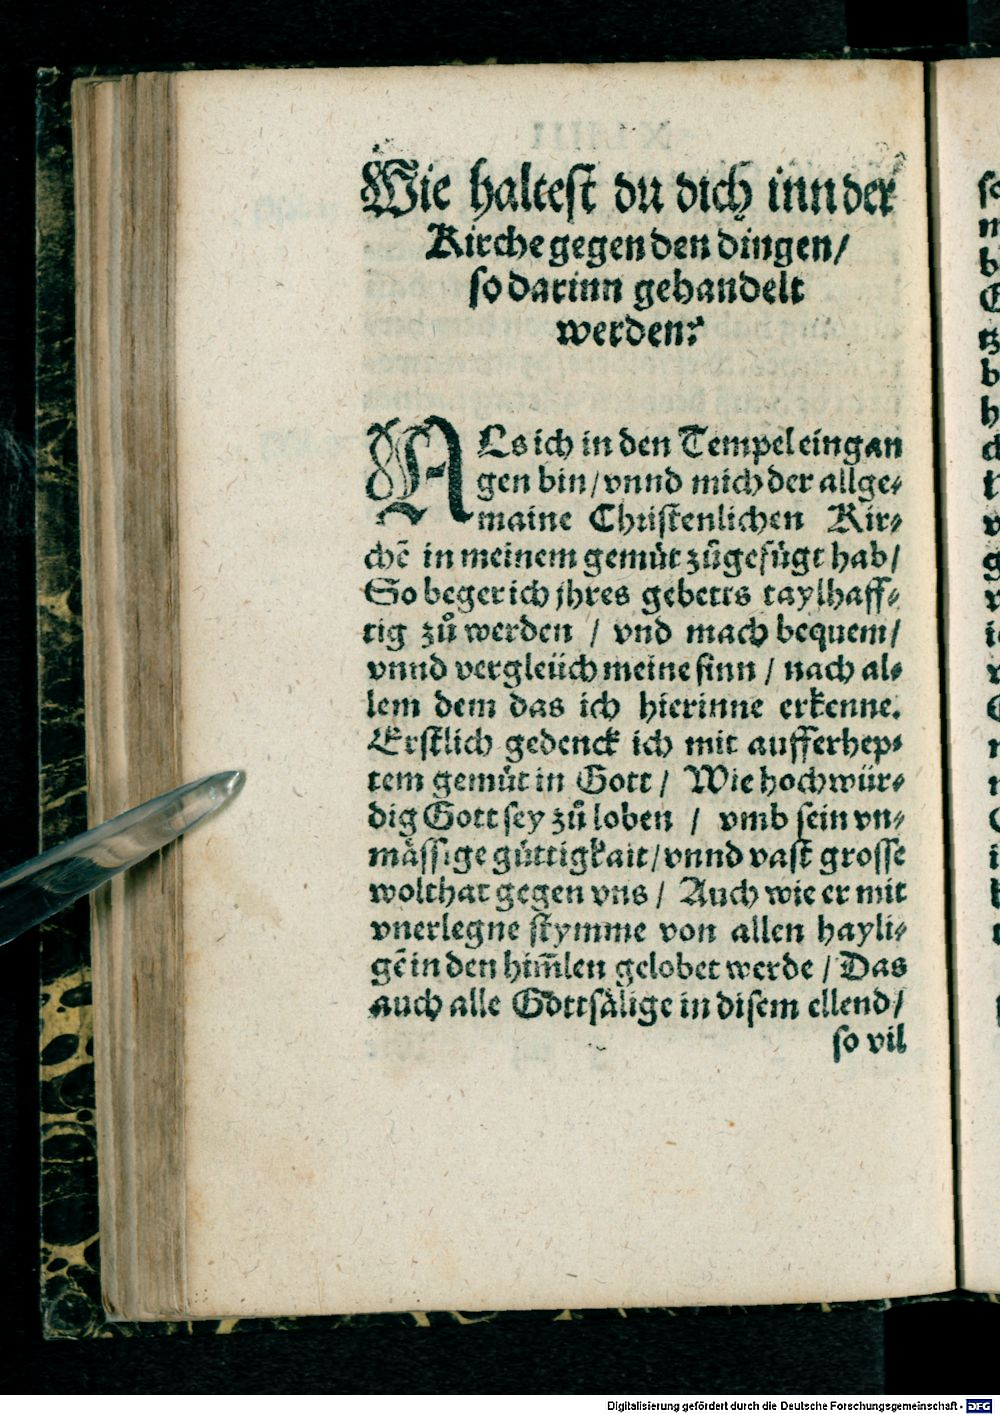 Wie haltest du dich inn der
Kirche gegen den dingen/
so darinn gehandelt
werden?
ALs ich in den Tempel eingan
gen bin/ vnnd mich der allge-
maine Christenlichen Kir-
chē in meinem gemuͤt zuͦgefuͤgt hab/
So beger ich jhres gebetts taylhaff-
tig zuͦ werden / vnd mach bequem/
vnnd vergleiich meine sinn / nach al-
lem dem das ich hierinne erkenne.
Erstlich gedenck ich mit aufferhep-
tem gemuͤt in Gott / Wie hochwür-
dig Gott sey zuͦ loben / vmb sein vn-
maͤssige guͤttigkait/ vnnd vast grosse
wolthat gegen vns / Auch wie er mit
vnerlegne stymme von allen hayli-
gē in den him̄len gelobet werde / Das
auch alle Gottsaͤlige in disem ellend/
so vil
Digitalisierung gefördert durch die Deutsche Forschungsgemeinschaft - DFG